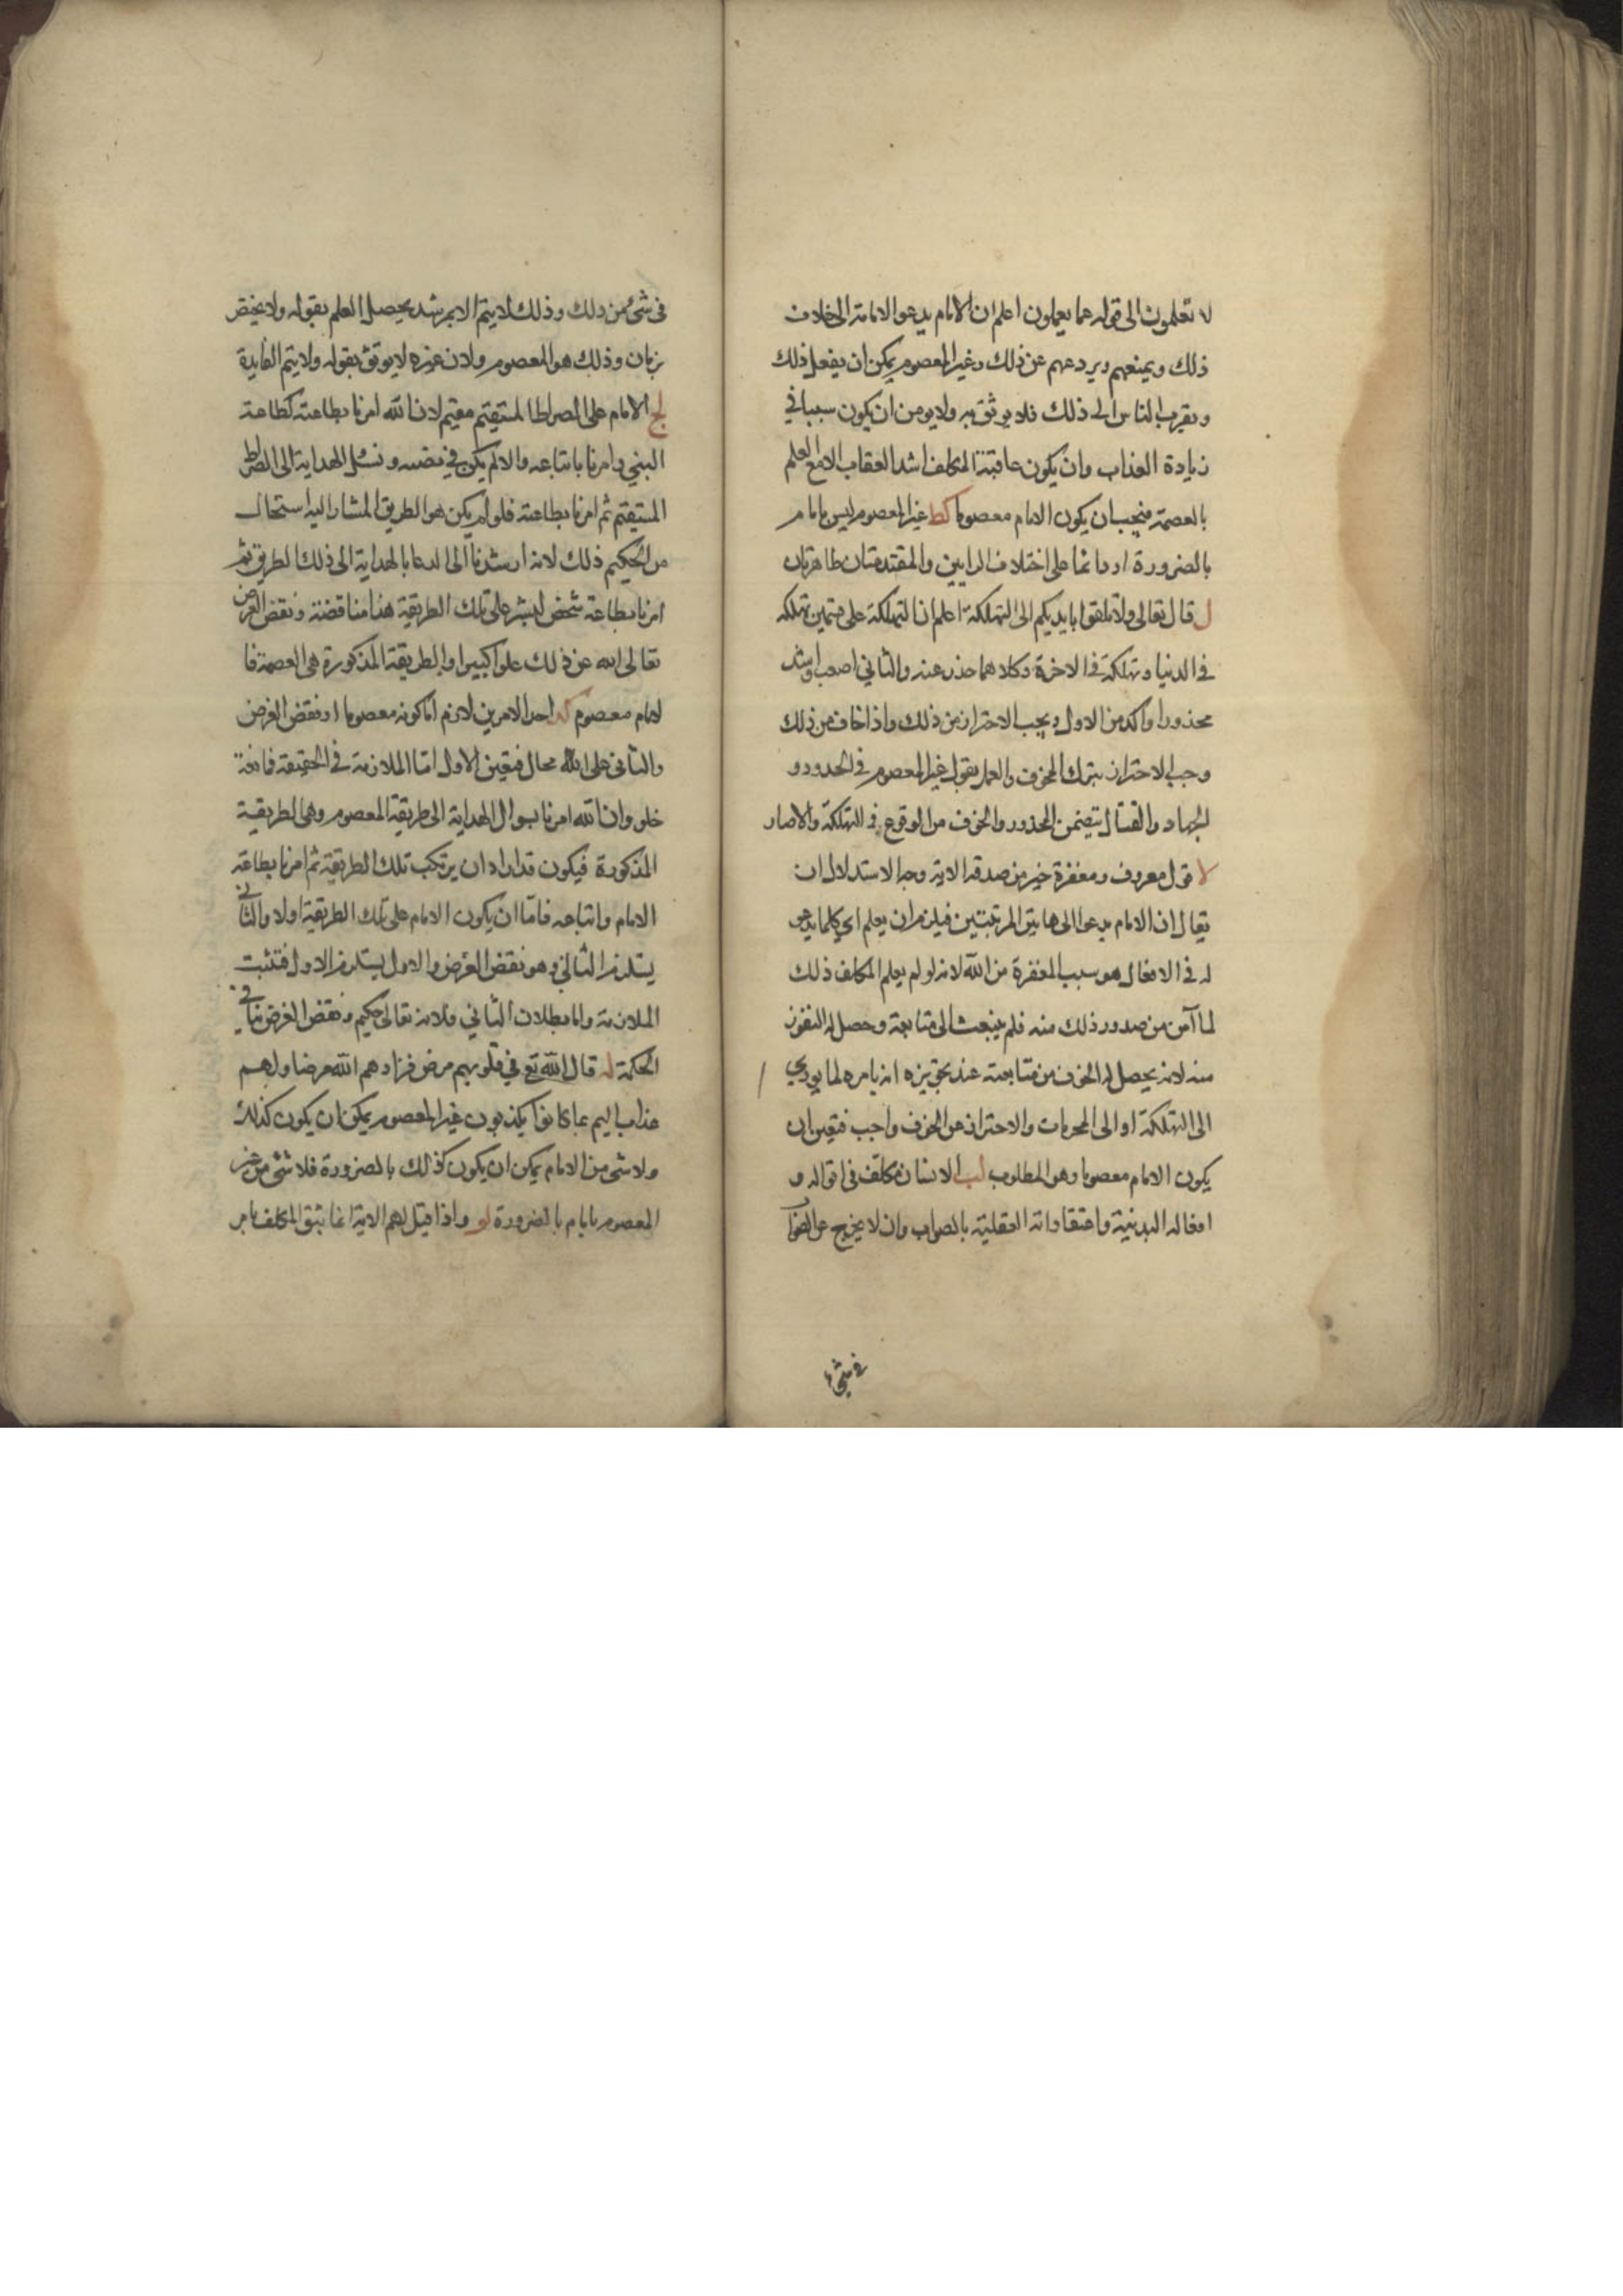 لا تعلمون الى قوله عما يعملون اعلم ان الامام يدعو الامامة الى خلاف
ذلك ويمنعهم ويردعهم عن ذلك وغير المعصوم يمكن ان يفعل ذلك
ويقرب الناس الى ذلك فلا يوثق به ولا يومن ان يكون سببا في
زيادة العذاب وان يكون عاقبة المكلف اشد العقاب الا مع العلم
بالعصمة فيجب ان يكون الامام معصوما كط غير المعصوم ليس بامام
بالضرورة او دائما على اختلاف الرايين والمقدمتان ظاهرتان
ل قال تعالى ولا تلقوا بايديكم الى التهلكة اعلم ان التهلكة على قسمين تهلكه
في الدنيا وتهلكة في الاخرة وكلاهما حذر عنه والثاني اصعب واشد
محذورا واكد من الاول ويجب الاحتراز من ذلك واذا خاف من ذلك
وجب الاحتراز بترك المخوف والعمل بقول غير المعصوم في الحدود و
الجهاد والقتال يتضمن المحذور والخوف من الوقوع في التهلكة والاضار
لا قول معروف ومغفرة خير من صدقه الاية وجه الاستدلال ان
يقال ان الامام يدعو الى هاتين المرتبتين فيلزم ان يعلم اي كلما يدعو
له في الافعال هو سبب المغفرة من الله لانه لو لم يعلم المكلف ذلك
لما آمن من صدور ذلك منه فلم ينبعث الى متابعة وحصل له النفور
منه لانه يحصل له الخوف من متابعته عند تجويزه انه يامره لما يودي
الى التهلكة او الى المحرمات والاحتراز عن الخوف واجب فتعين ان
يكون الامام معصوما وهو المطلوب لب الانسان مكلف في اقواله و
افعاله البدنية واعتقاداته العقلية بالصواب وان لا يخرج عن الصوا
في شيء
في شيء من ذلك وذلك لا يتم الا بمرشد يحصل العلم بقوله ولا يختص
بزمان وذلك هو المعصوم ولان غيره لا يوثق بقوله ولا يتم الفايدة
لج الامام على الصراط المستقيم مقيم لان الله امرنا بطاعته كطاعة
النبي وامرنا باتباعه والا لم يكن في نصبه ونسئل الهداية الى الصراط
المستقيم ثم امرنا بطاعته فلو لم يكن هو الطريق المشار اليه استحال
من الحكيم ذلك لانه ارشدنا الى الدعا بالهداية الى ذلك الطريق ثم
امرنا بطاعة شخص ليس على تلك الطريقة هذا مناقضة ونقض الغرض
تعالى الله عن ذلك علوا كبيرا والطريقة المذكورة هي العصمة فا
لامام معصوم لد احد الامرين لازم اما كونه معصوما او نقض الغرض
والثاني على الله محال فتعين الاول اما الملازمة في الحقيقة فمانعة
خلو وان الله امرنا بسوال الهداية الى طريقة المعصوم وهى الطريقة
المذكورة فيكون قد اراد ان يرتكب تلك الطريقة ثم امرنا بطاعة
الامام واتباعه فاما ان يكون الامام على تلك الطريقة اولا والثاني
يستلزم الثاني وهو نقض الغرض والاول يستلزم الاول فتثبت
الملازمة واما بطلان الثاني فلانه تعالى حكيم ونقض الغرض ينافي
الحكمة له قال الله تع في قلوبهم مرض فزادهم الله مرضا ولهم
عذاب اليم بما كانوا يكذبون غير المعصوم يمكن ان يكون كذلك
ولا شئ من الامام يمكن ان يكون كذلك بالضرورة فلا شئ من غير
المعصوم بامام بالضرورة لو واذا قيل لهم الاية انما يثق المكلف بامر